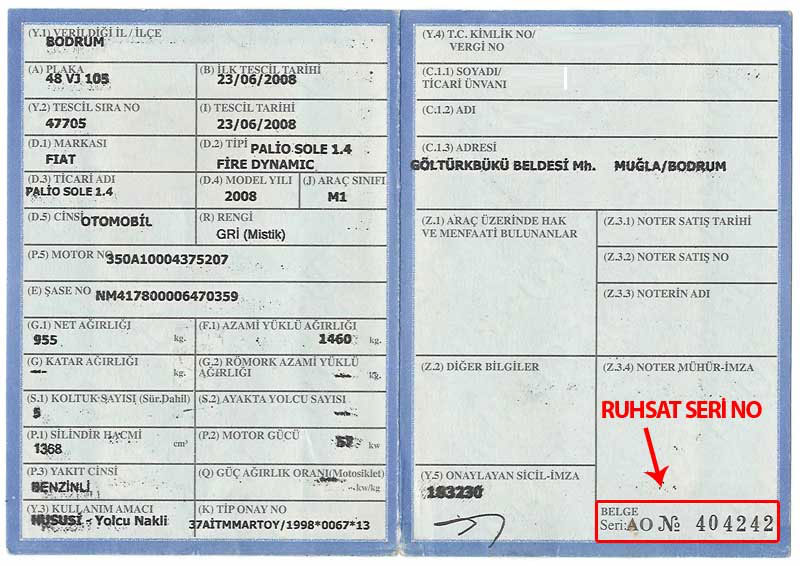 (Y.1) VERİLDİĞİ İL / İLÇE
BODRUM
(A) PLAKA
48 VJ 105
(B) İLK TESCİL TARİHİ
23/06/2008
(Y.2) TESCİL SIRA NO
47705
(I) TESCİL TARİHİ
23/06/2008
(D.1) MARKASI
FIAT
(D.2) TİPİ PALİO SOLE 1.4
FİRE DYNAMIC
(D.3) TİCARİ ADI
PALİO SOLE 1.4
(D.4) MODEL YILI
2008
(J) ARAÇ SINIFI
M1
(D.5) CİNSİ OTOMOBİL
(R) RENGİ
GRİ (Mistik)
(P.5) MOTOR NO 350A10004375207
(E) ŞASE NO NM417800006470359
(G.1) NET AĞIRLIĞI
955 kg.
(F.1) AZAMİ YÜKLÜ AĞIRLIĞI
1460 kg.
(G) KATAR AĞIRLIĞI
kg.
(G.2) RÖMORK AZAMİ YÜKLÜ
AĞIRLIĞI
kg.
(S.1) KOLTUK SAYISI (Sür.Dahil)
5
(S.2) AYAKTA YOLCU SAYISI
(P.1) SİLİNDİR HACMİ
1368 cm³
(P.2) MOTOR GÜCÜ
57 kw
(P.3) YAKIT CİNSİ
BENZİNLİ
(Q) GÜÇ AĞIRLIK ORANI(Motosiklet)
kw/kg
(Y.3) KULLANIM AMACI
HUSUSİ - Yolcu Nakli
(K) TİP ONAY NO
37AİTMMARTOY/1998*0067*13
(Y.4) T.C. KİMLİK NO/
VERGİ NO
(C.1.1) SOYADI/
TİCARİ ÜNVANI
(C.1.2) ADI
(C.1.3) ADRESİ
GÖLTÜRKBÜKÜ BELDESİ Mh. MUĞLA/BODRUM
(Z.1) ARAÇ ÜZERİNDE HAK
VE MENFAATİ BULUNANLAR
(Z.3.1) NOTER SATIŞ TARİHİ
(Z.3.2) NOTER SATIŞ NO
(Z.3.3) NOTERİN ADI
(Z.2) DİĞER BİLGİLER
(Z.3.4) NOTER MÜHÜR-İMZA
RUHSAT SERİ NO
(Y.5) ONAYLAYAN SİCİL-İMZA
183230
BELGE
Seri: AO № 404242